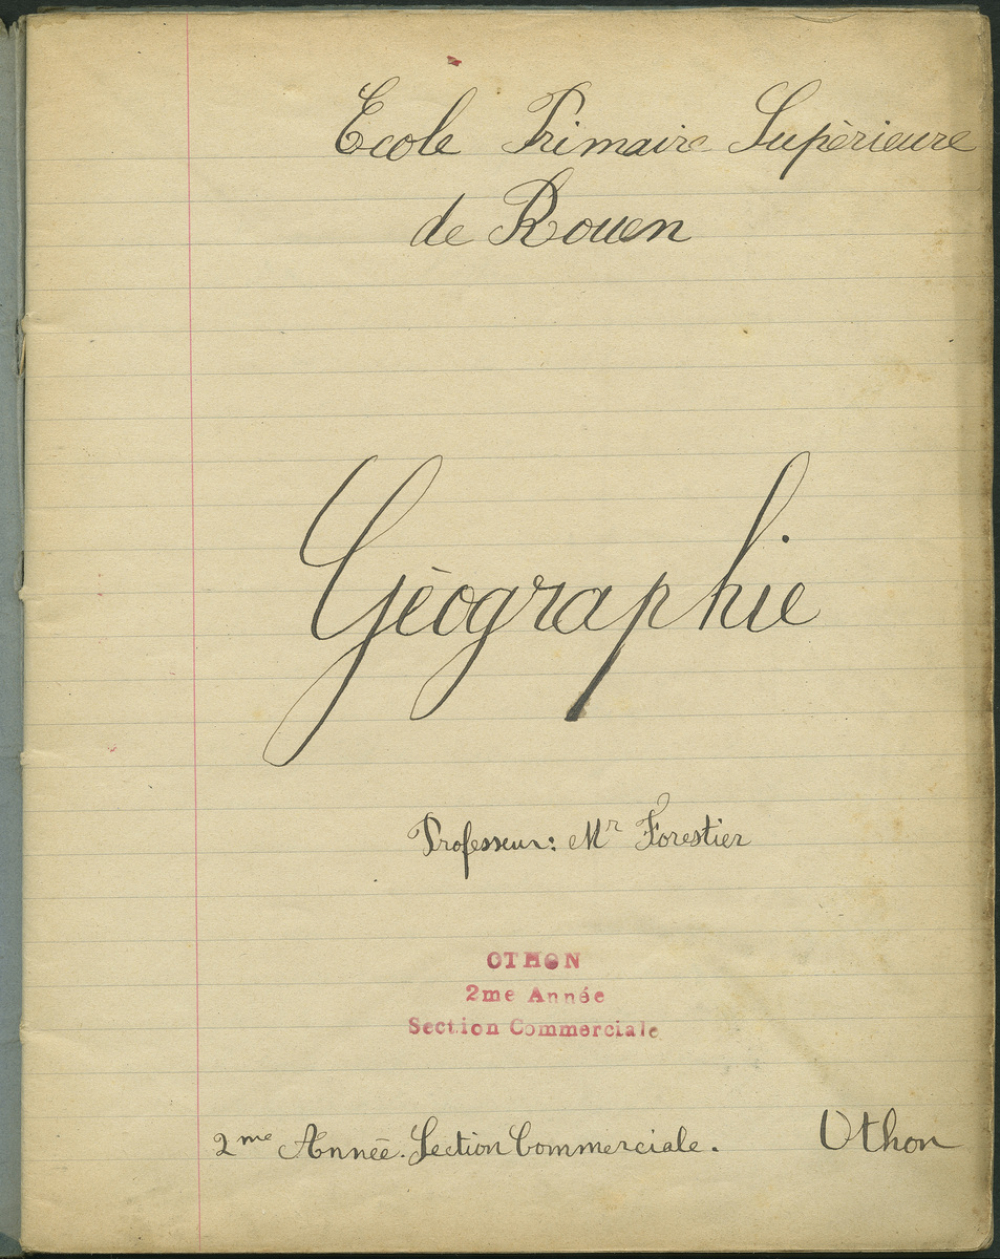 Ecole Primaire Supérieure
de Rouen
Géographie
Professeur: Mr Forestier
OTHON
2me Année
Section Commerciale
2me Année. Section Commerciale. Othon